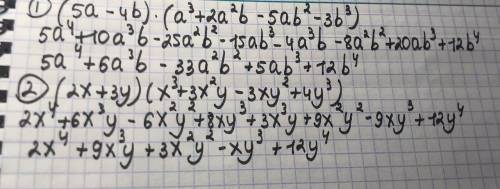 ① (5a - 4b) · (a³+2a²b - 5ab² - 3b³)
5a⁴+10a³b - 25a²b² - 15ab³ - 4a³b - 8a²b² + 20ab³ + 12b⁴
5a⁴ + 6a³b - 33a²b² + 5ab³ + 12b⁴
② (2x + 3y) (x³+3x²y - 3xy² + 4y³)
2x⁴ + 6x³y - 6x²y² + 8xy³ + 3x³y + 9x²y² - 9xy³ + 12y⁴
2x⁴ + 9x³y + 3x²y² - xy³ + 12y⁴